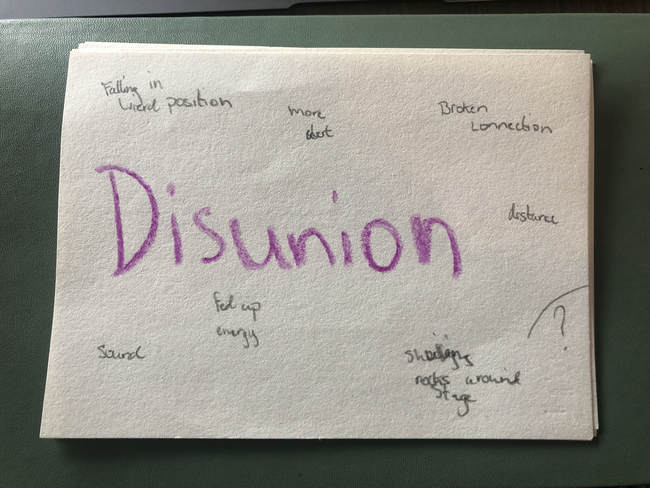 Falling in
wierd position
more
Broken
connection
distance
Disunion
Fed up
energy
?
Sound
rocks around
stage